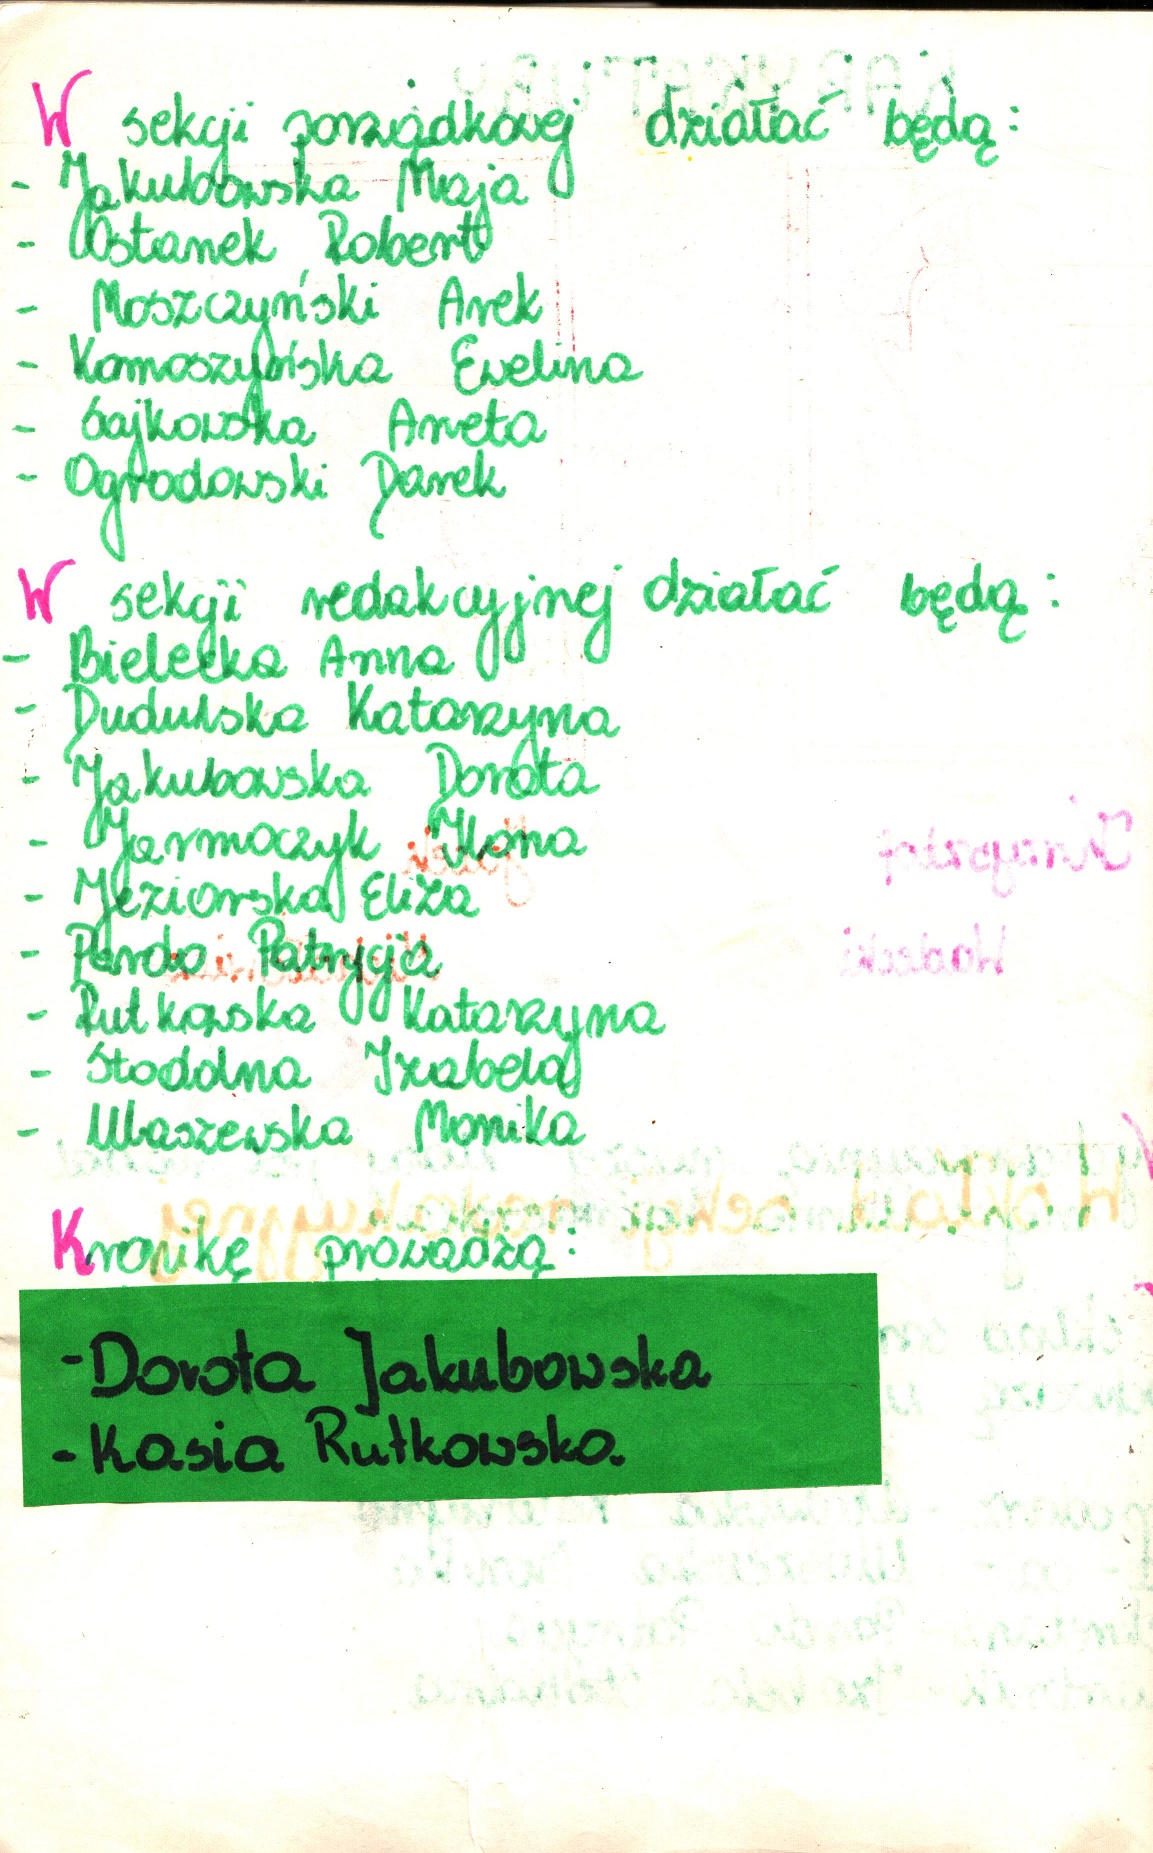 W sekcji porządkowej działać będą:
- Jakubowska Maja
- Ostanek Robert
- Moszczyński Arek
- Komoszyńska Ewelina
- Sajkowska Aneta
- Ogrodowski Darek
W sekcji redakcyjnej działać będą:
- Bielecka Anna
- Dudulska Katarzyna
- Jakubowska Dorota
- Jarmoczyk Ilona
- Jeziorska Eliza
- Panda Patrycja
- Rutkowska Katarzyna
- Stodolna Izabela
- Ułaszewska Monika
Kronikę prowadzą:
- Dorota Jakubowska
- Kasia Rutkowska.